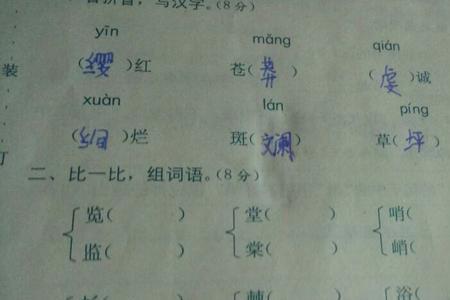 拼音,写汉字。(8分)
yīn măng qián
装 (缨)红 苍(莽) (虔)诚
xuàn lán píng
订 (绚)烂 斑(斓) 草(坪)
二、比一比,组词语。(8分)
览( ) 堂( ) 哨(
监( ) 棠( ) 峭(
浴(